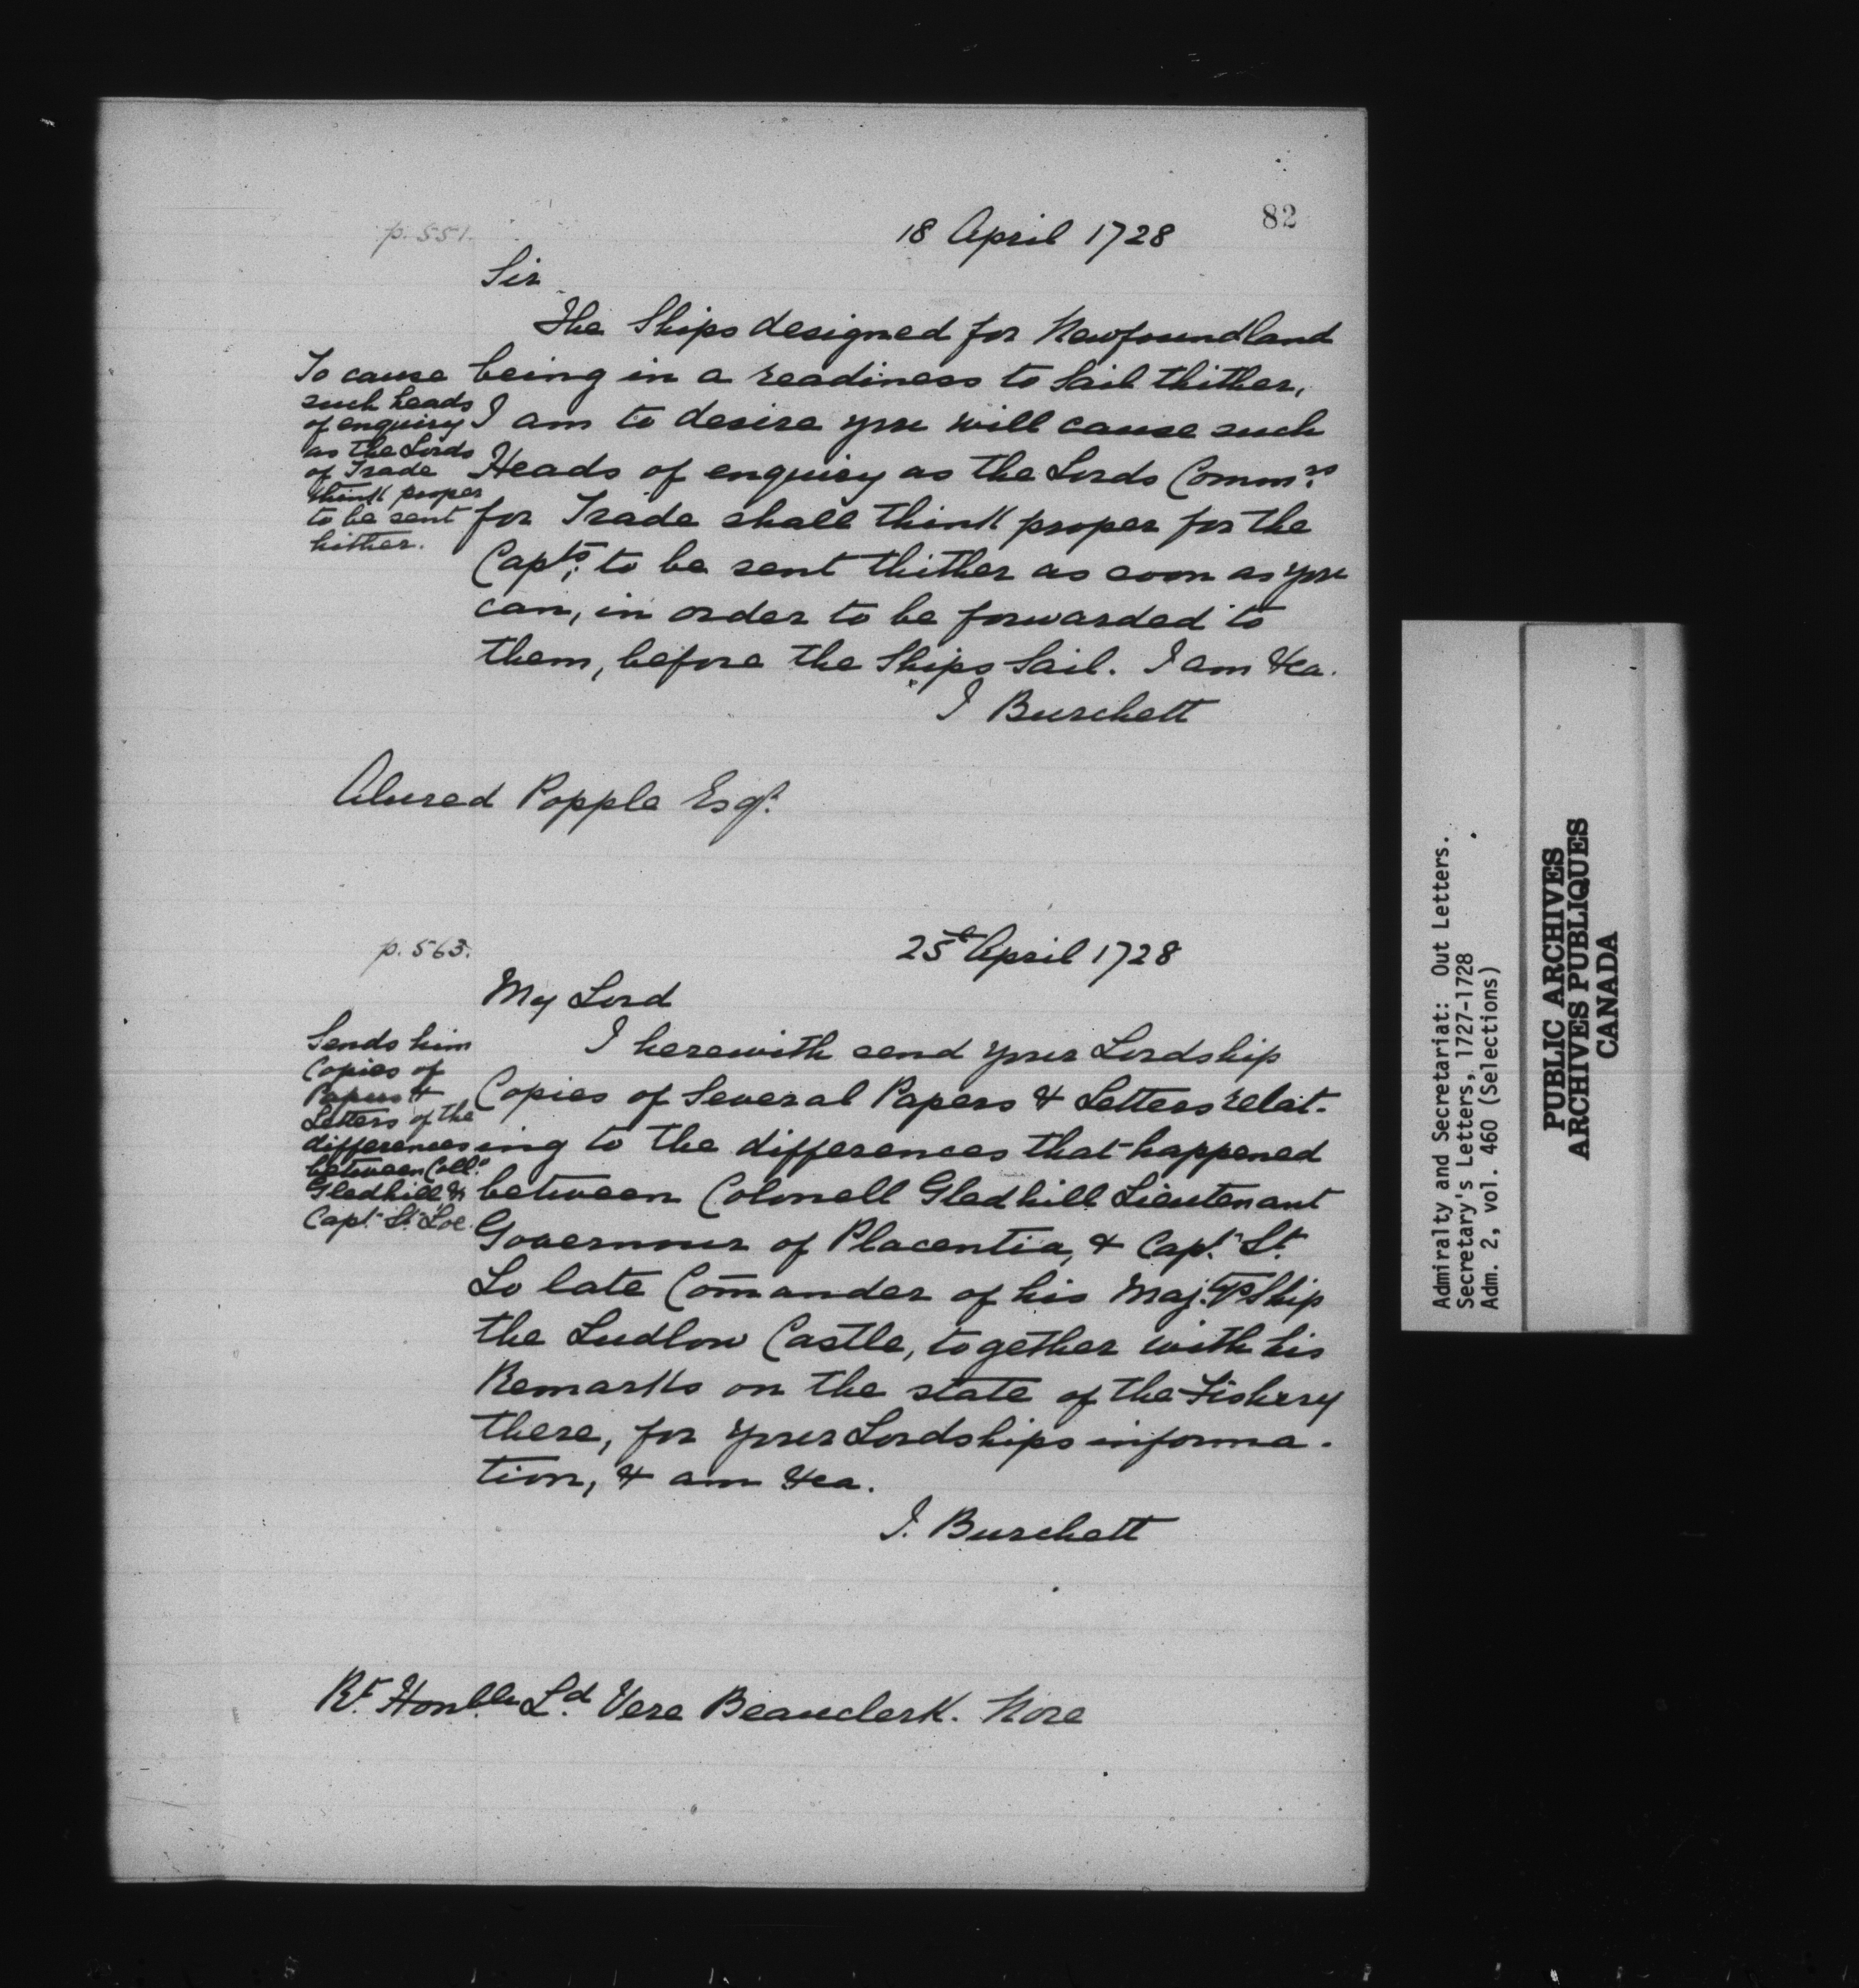 82
p. 551.
18 April 1728
Sir
The Ships designed for Newfoundland
being in a readiness to Sail thither,
I am to desire you will cause such
Heads of enquiry as the Lords Comm.rs
for Trade shall think proper for the
Capts: to be sent thither as soon as you
can, in order to be forwarded to
them, before the Ships Sail. I am &ca.
J Burchett
To cause
such heads
of enquiry
as the Lords
of Trade
think proper
to be sent
hither.
Alured Popple Esqr.
p. 563.
25th April 1728
My Lord
I herewith send your Lordship
Copies of Several Papers & Letters relat-
ing to the differences that happened
between Colonell Gledhill Lieutenant
Governour of Placentia, & Capt. St.
Lo late Com̄ander of his Maj.tys Ship
the Ludlow Castle, together with his
Remarks on the state of the Fishery
there, for your Lordships informa-
tion, & am &ca.
J. Burchett
Sends him
Copies of
Papers &
Letters of the
differences
between Coll.o
Gledhill &
Capt. St. Loe.
Rt. Honble. Ld. Vere Beauclerk. Nore
Admiralty and Secretariat: Out Letters.
Secretary's Letters, 1727-1728
Adm. 2, vol. 460 (Selections)
PUBLIC ARCHIVES
ARCHIVES PUBLIQUES
CANADA